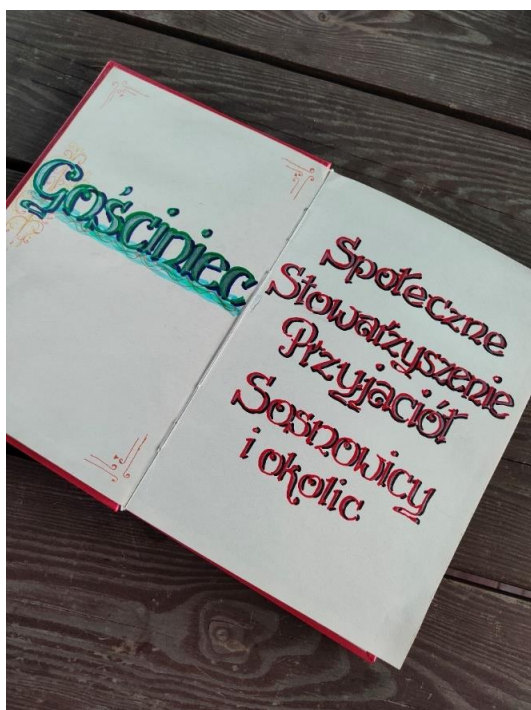 Gościniec
Społeczne
Stowarzyszenie
Przyjaciół
Sosnowicy
i okolic